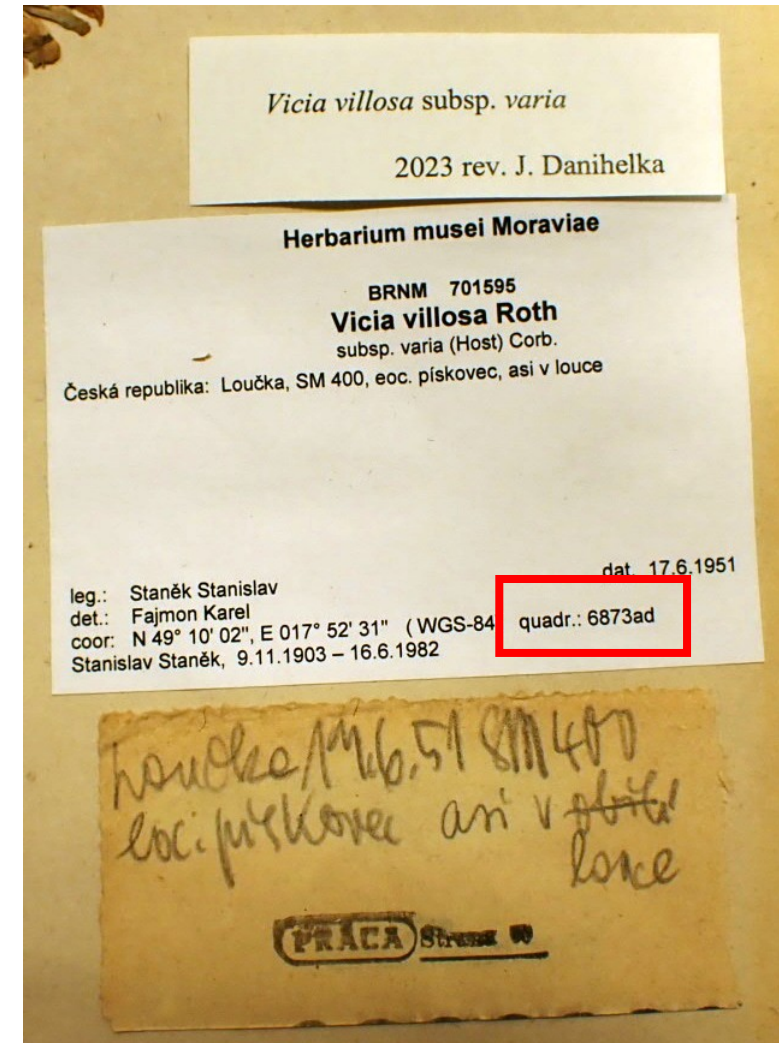 Vicia villosa subsp. varia
2023 rev. J. Danihelka
Herbarium musei Moraviae
BRNM 701595
Vicia villosa Roth
subsp. varia (Host) Corb.
Česká republika: Loučka, SM 400, eoc. pískovec, asi v louce
dat. 17.6.1951
leg.: Staněk Stanislav
det.: Fajmon Karel
coor: N 49° 10' 02", E 017° 52' 31" ( WGS-84 quadr.: 6873ad
Stanislav Staněk, 9.11.1903 – 16.6.1982
Loučka 17.6.51 SM 400
eoc. pískovec asi v obilí
louce
PRÁCA Strana